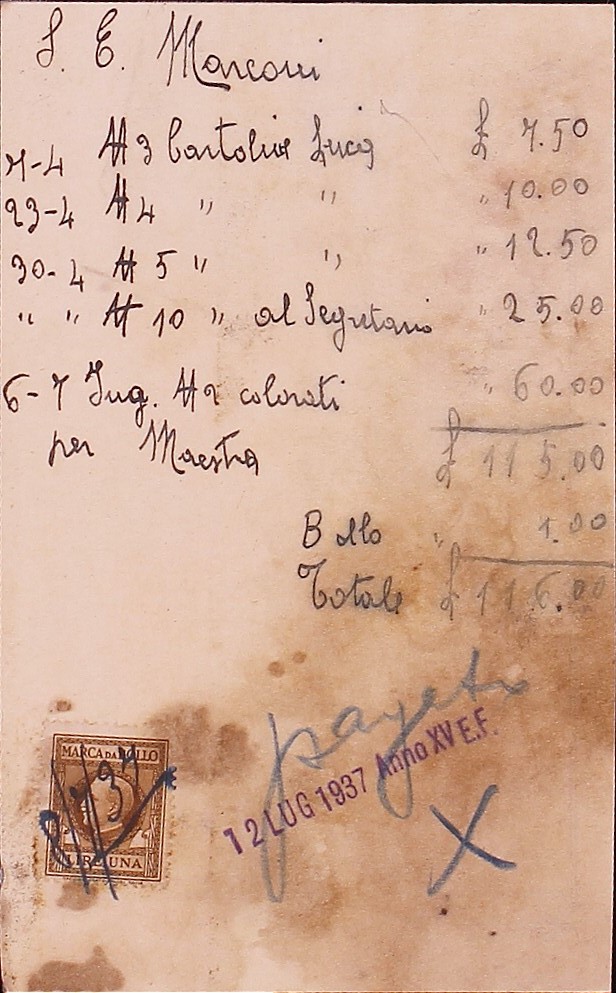 S. E. Marconi
7-4 N 3 Cartoline Luce £ 7.50
23-4 N 4 " " " 10.00
30-4 N 5 " " " 12.50
" " N 10 " al Segretario " 25.00
6-7 Ing. N 2 colorati " 60.00
per Maestra £ 115.00
Bollo " 1.00
Totale £ 116.00
pagato
12 LUG 1937 Anno XV E.F.
X
MARCA DA BOLLO
LIRE UNA